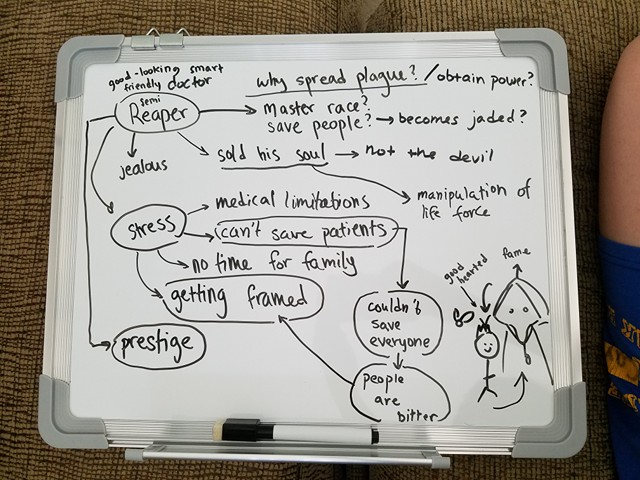 good-looking smart
friendly doctor
why spread plague? / obtain power?
semi
Reaper
Master race?
save people? → becomes jaded?
jealous
sold his soul → not the devil
manipulation of
life force
medical limitations
stress
can't save patients
no time for family
getting framed
prestige
couldn't
save
everyone
people
are
bitter
good
hearted
fame